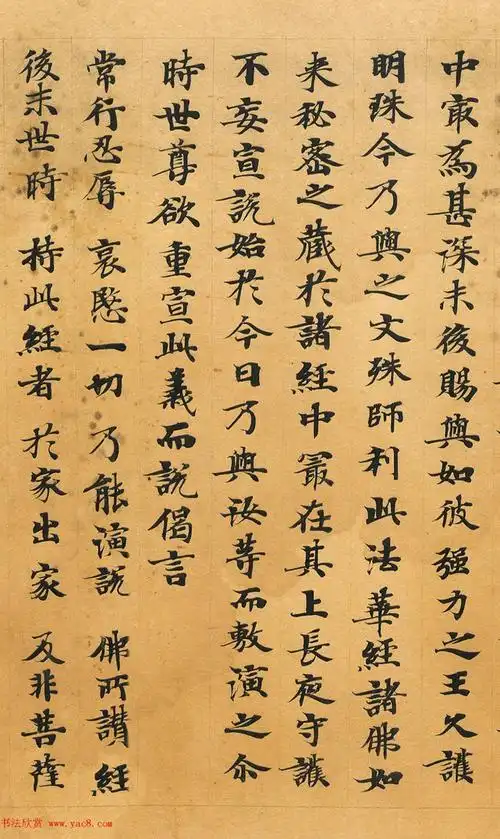 中冣為甚深末後賜與如彼强力之王久護
明珠今乃與之文殊師利此法華經諸佛如
来秘密之藏於諸經中冣在其上長夜守護
不妄宣說始於今日乃與汝等而敷演之尒
時世尊欲重宣此義而說偈言
常行忍辱 哀愍一切 乃能演說 佛所讃經
後末世時 持此經者 於家出家 及非菩薩
书法欣赏 www.yac8.com